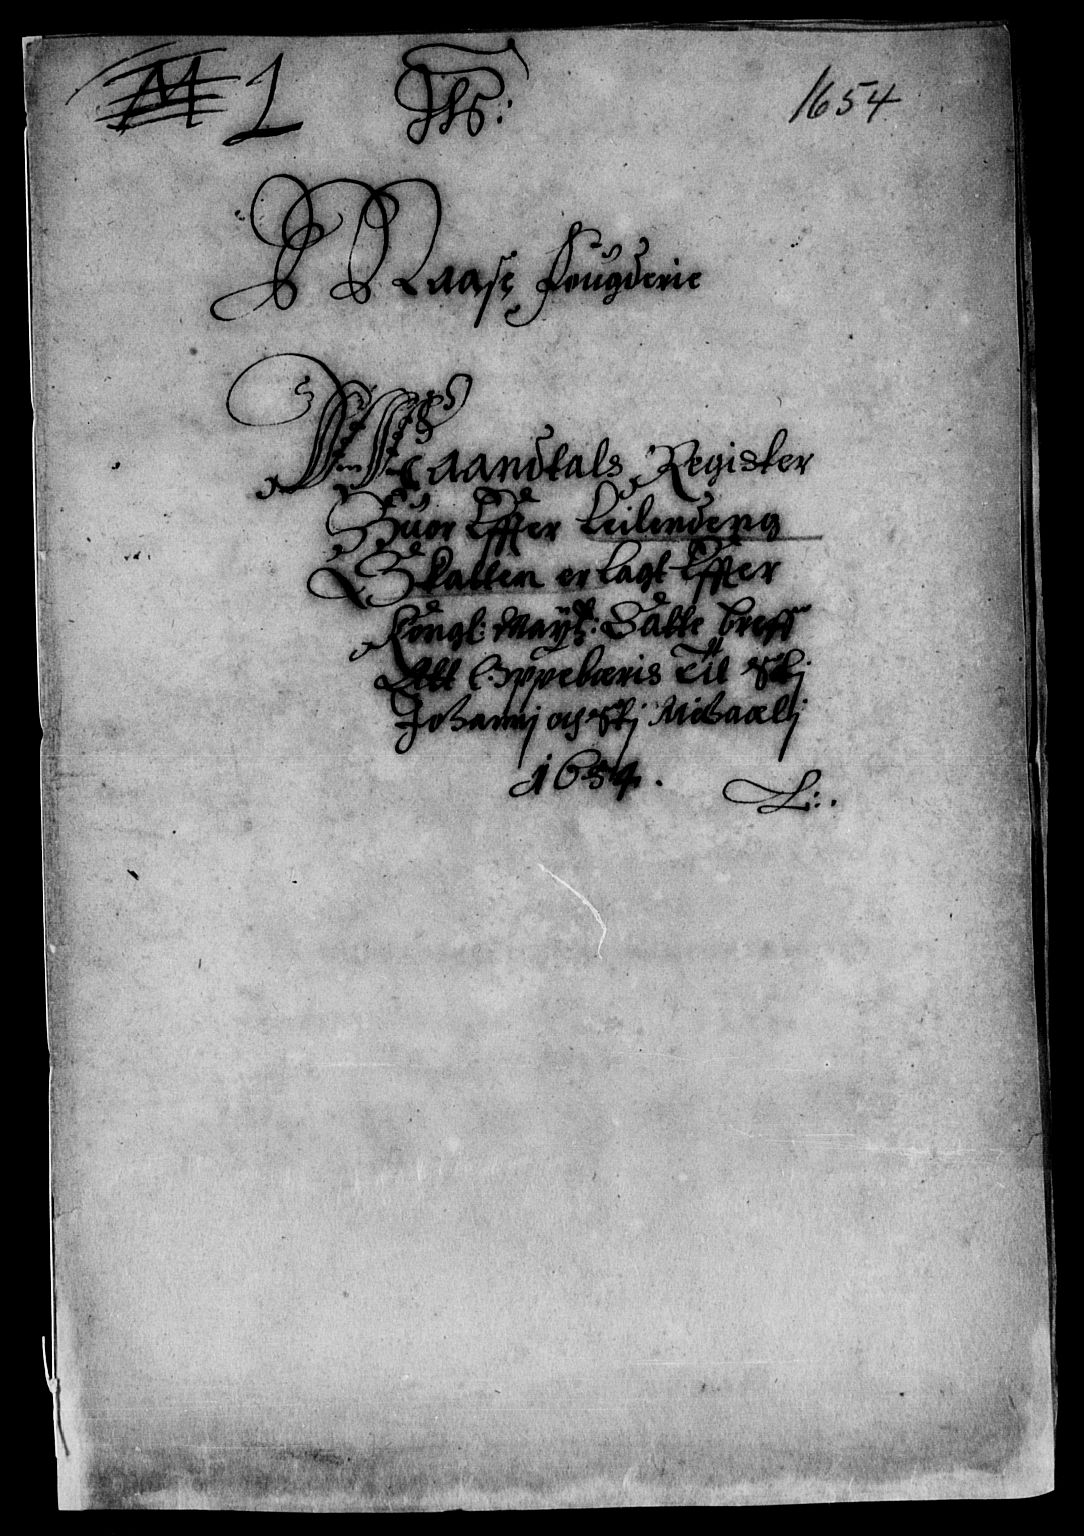 1 Ihs: 1654
Moss Fougderie
Mandtals Register
Huor Effter Leilending
Skatten er lagt Effter
Kongl: May:tz: Udatte breff
Att Oppebæris Til St:j
Johannj och St:j Michaelj
1654.
L:.